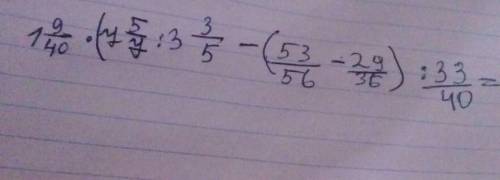 1 9/40 · (4 5/7 : 3 3/5 - (53/56 - 29/36) : 33/40 =